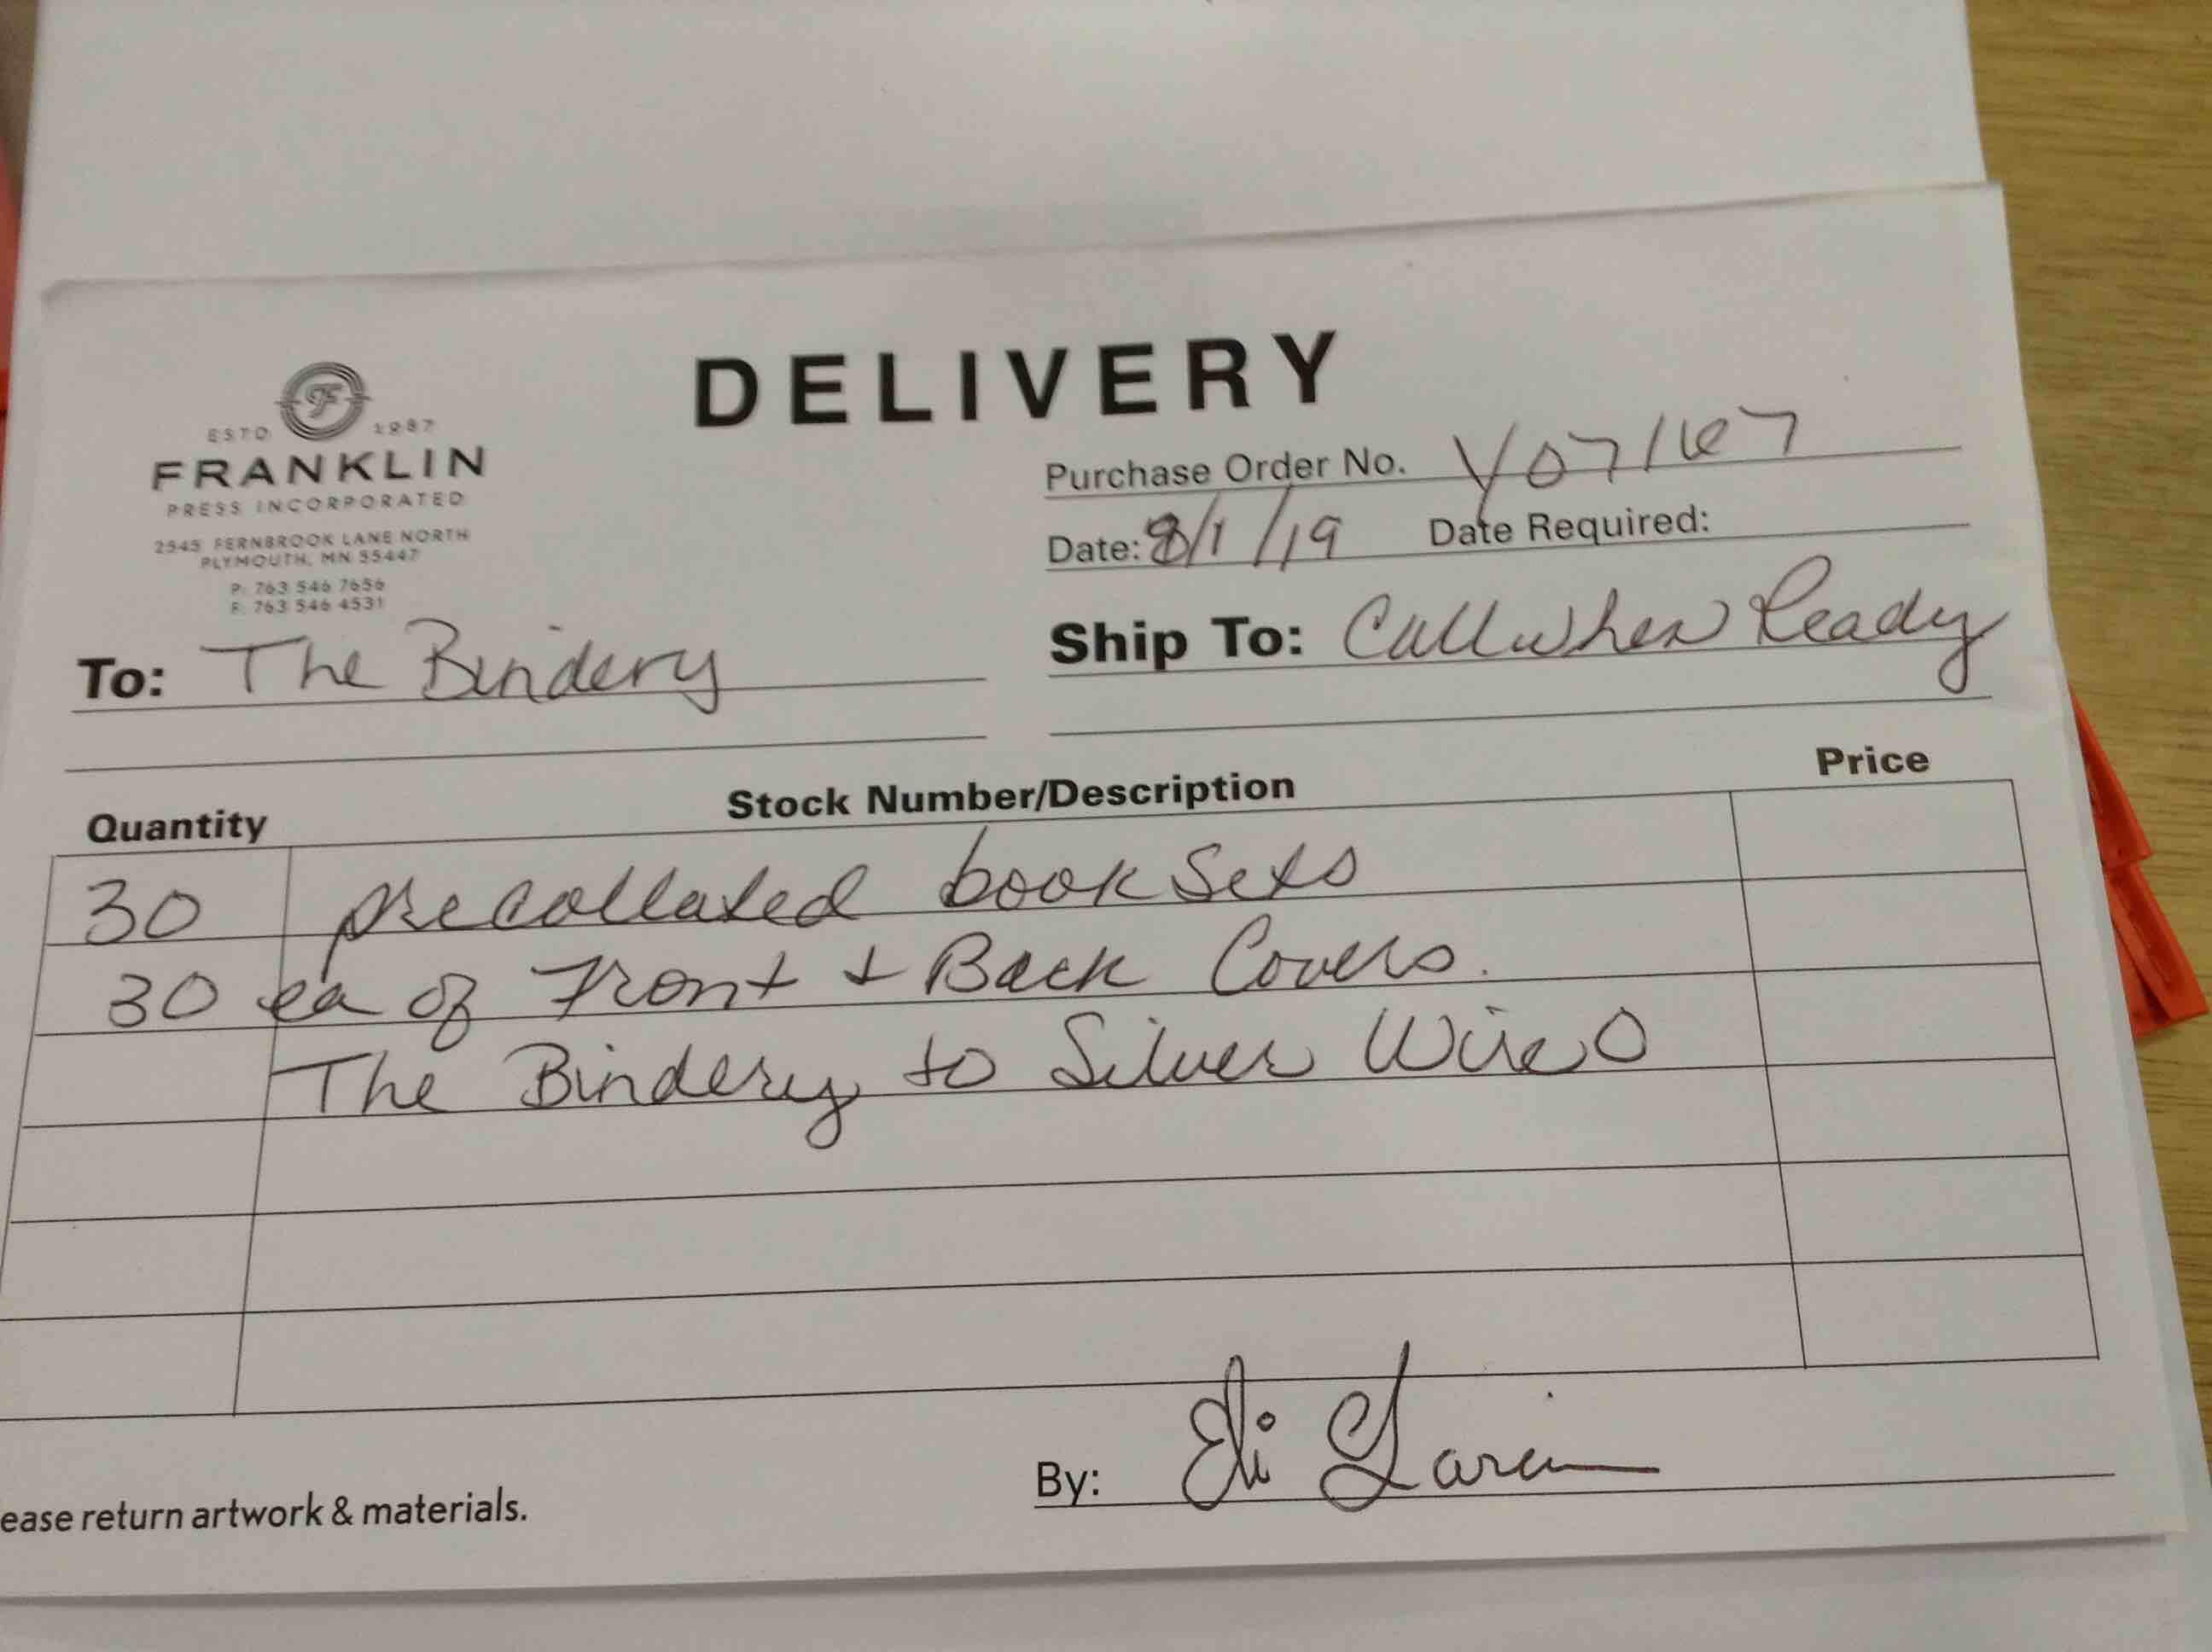 DELIVERY
ESTD 1987
FRANKLIN
PRESS INCORPORATED
2545 FERNBROOK LANE NORTH
PLYMOUTH, MN 55447
P: 763 546 7656
F: 763 546 4531
Purchase Order No. Y07167
Date: 8/1/19 Date Required:
To: The Bindery
Ship To: Call when Ready
Quantity Stock Number/Description Price
30 precollated book Sets
30 ea of Front + Back Covers.
The Bindery to Silver Wire O
ease return artwork & materials.
By: Eli